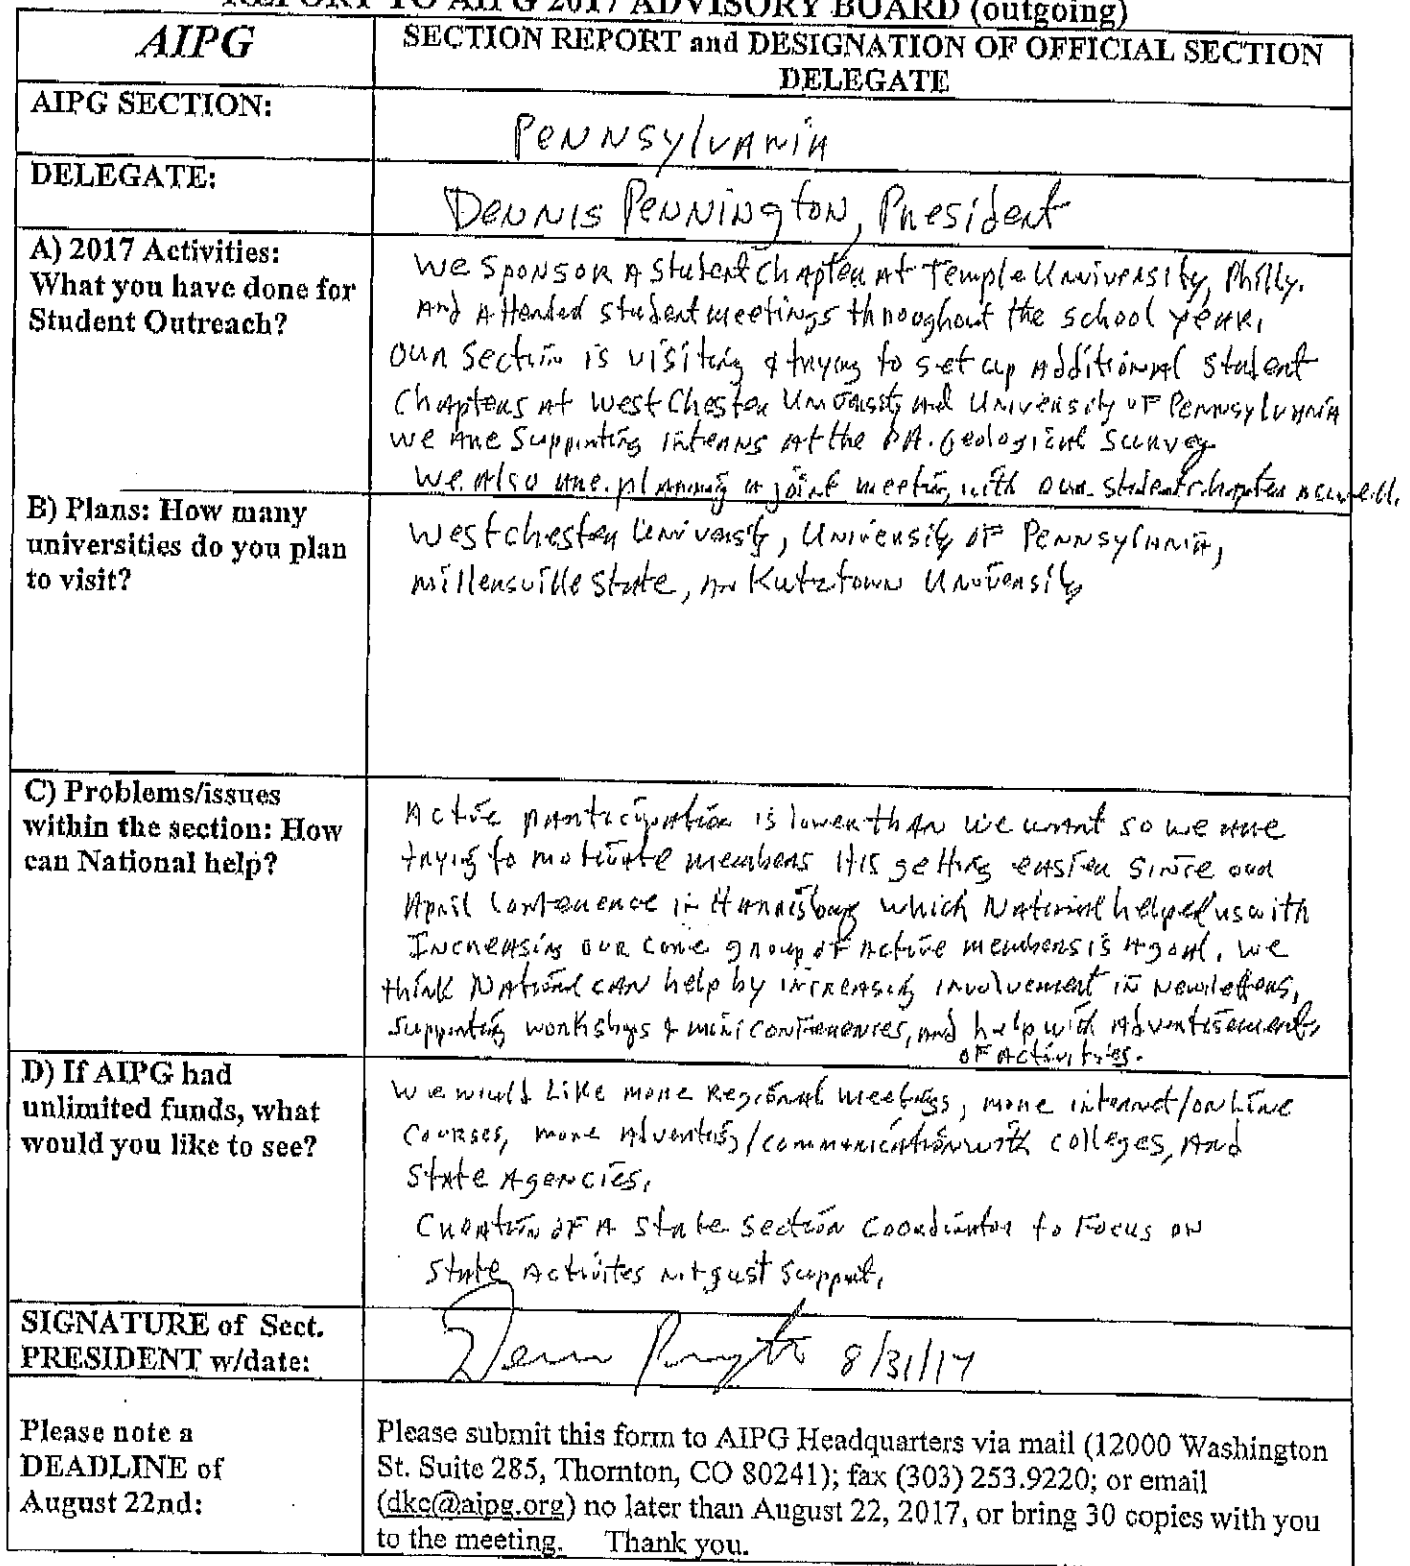 REPORT TO AIPG 2017 ADVISORY BOARD (outgoing)
AIPG
SECTION REPORT and DESIGNATION OF OFFICIAL SECTION
DELEGATE
AIPG SECTION:
Pennsylvania
DELEGATE:
Dennis Pennington, President
A) 2017 Activities:
What you have done for
Student Outreach?
We sponsor a student chapter at Temple University, Philly.
And attended student meetings throughout the school year.
Our section is visiting & trying to set up additional student
chapters at West Chester University and University of Pennsylvania
We are supporting interns at the PA. Geological Survey
We also are planning a joint meeting with our student chapter as well.
B) Plans: How many
universities do you plan
to visit?
Westchester University, University of Pennsylvania,
Millersville State, or Kutztown University
C) Problems/issues
within the section: How
can National help?
Active participation is lower than we want so we are
trying to motivate members It is getting easier since our
April Conference in Harrisburg which National helped us with
Increasing our core group of active members is a goal. We
think National can help by increasing involvement in newsletters,
supporting workshops & mini conferences, and help with advertisements
of activities.
D) If AIPG had
unlimited funds, what
would you like to see?
We would like more regional meetings, more internet/online
courses, more adverting/communication with colleges, and
state agencies.
Creation of a state section coordinator to focus on
state activites not just support.
SIGNATURE of Sect.
PRESIDENT w/date:
8/31/17
Please note a
DEADLINE of
August 22nd:
Please submit this form to AIPG Headquarters via mail (12000 Washington
St. Suite 285, Thornton, CO 80241); fax (303) 253.9220; or email
(dkc@aipg.org) no later than August 22, 2017, or bring 30 copies with you
to the meeting. Thank you.